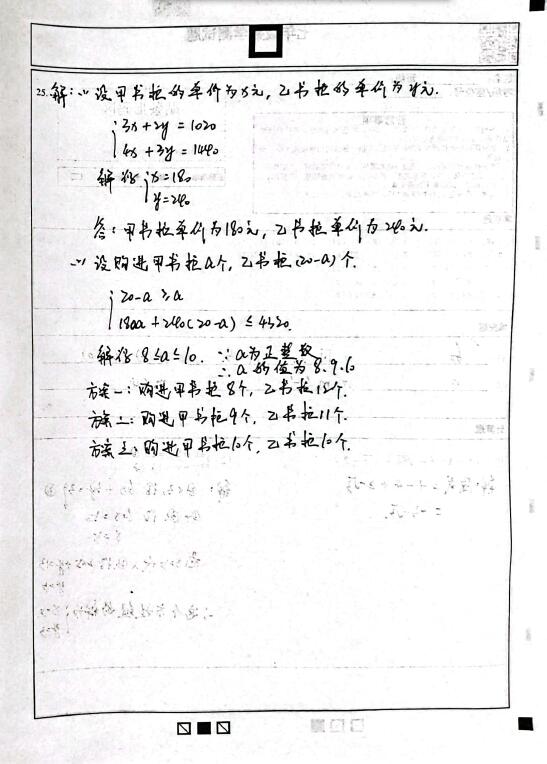 25.解:(1)设甲书柜的单价为x元,乙书柜的单价为y元.
3x+2y=1020
4x+3y=1440
解得 x=180
y=240
答:甲书柜单价为180元,乙书柜单价为240元.
(2)设购进甲书柜a个,乙书柜(20-a)个.
20-a≥a
180a+240(20-a)≤4320.
解得8≤a≤10. ∵a为正整数
∴a的值为8.9.10
方案一:购进甲书柜8个,乙书柜12个.
方案二:购进甲书柜9个,乙书柜11个.
方案三:购进甲书柜10个,乙书柜10个.